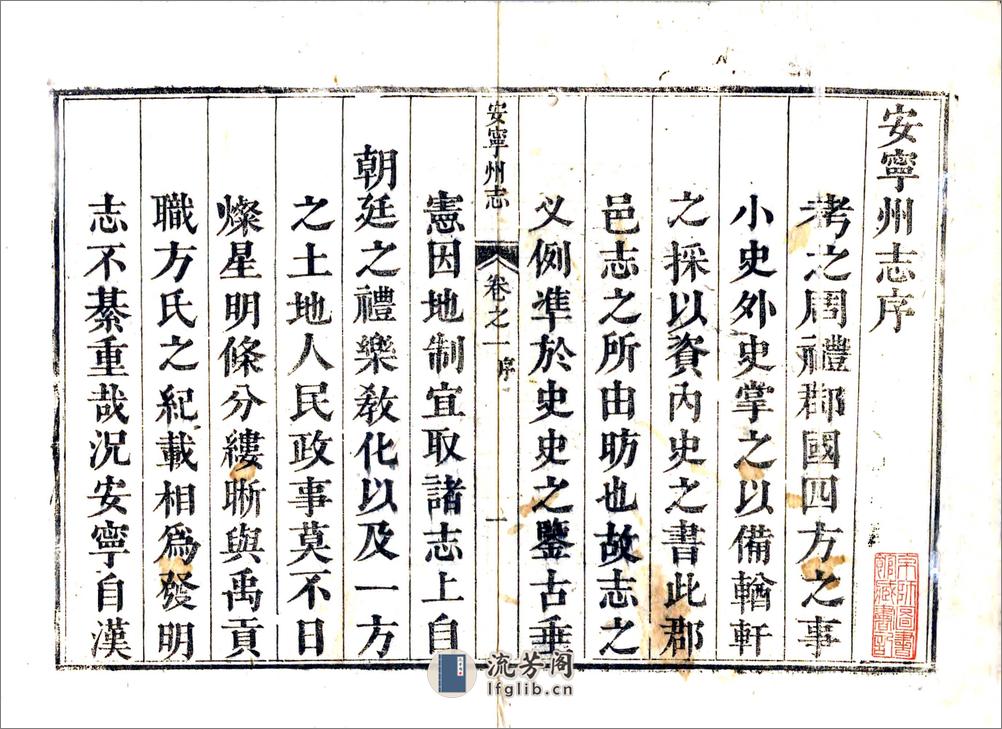 安寧州志序
考之周禮郡國四方之事
小史外史掌之以備輶軒
之採以資內史之書此郡
邑志之所由昉也故志之
义例準於史史之鑒古垂
安寧州志 卷之一 序 一
憲因地制宜取諸志上自
朝廷之禮樂教化以及一方
之土地人民政事莫不日
燦星明條分縷晰與禹貢
職方氏之紀載相為發明
志不綦重哉況安寧自漢
流芳阁
lfglib.cn